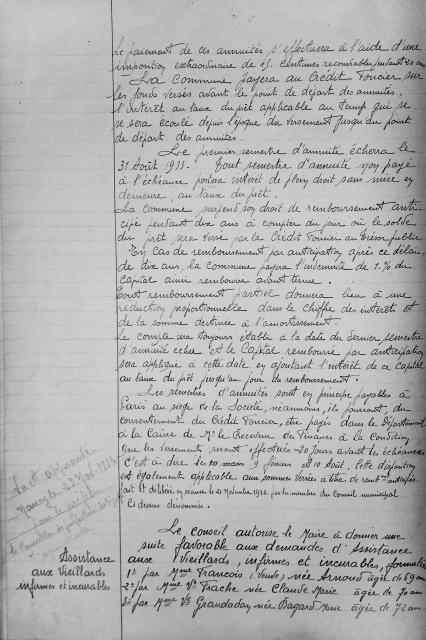 Le paiement de ces annuités s'effectuera à l'aide d'une
imposition extraordinaire de 45 centimes recouvrables pendant 30 ans
La Commune payera au Crédit Foncier sur
les fonds versés avant le point de départ des annuités,
l'intérêt au taux du prêt applicable au temps qui se
se sera écoulé depuis l'époque du versement jusqu'au point
de départ des annuités.
Le premier semestre d'annuité écherra le
31 Août 1933. Tout semestre d'annuité non payé
à l'échéance portera intérêt de plein droit sans mise en
demeure, au taux du prêt.
La Commune suspend son droit de remboursement anti
cipé pendant dix ans à compter du jour où le solde
du prêt sera versé par le Crédit Foncier au Trésor public
En cas de remboursement par anticipation après ce délai
de dix ans, la Commune payera l'indemnité de 1% du
Capital ainsi remboursé avant terme.
Tout remboursement partiel donnera lieu à une
réduction proportionnelle dans le chiffre des intérêts et
de la somme destinée à l'amortissement.
Le compte sera toujours établi à la date du dernier semestre
d'annuité échue et le Capital remboursé par anticipation
sera appliqué à cette date en ajoutant l'intérêt de ce capital
au taux du prêt jusqu'au jour de remboursement.
Les semestres d'annuités sont en principe payables à
Paris au siège de la Société, néanmoins, ils pourront, du
consentement du Crédit Foncier, être payés dans le Département
à la Caisse de Mr le Receveur des Finances à la Condition
que les versements seront effectués 20 jours avant les échéances
C'est à dire les février et 10 Août, cette disposition
est également applicable aux sommes versées à titre de rembt anticipés
fait et délibéré en séance le 21 Novembre 1932 par les membres du Conseil municipal
Ci dessus dénommés.
Vu et approuvé
Nancy, le Nov. 1932
Le conseil autorise le Maire à donner une
suite favorable aux demandes d'Assistance
aux Vieillards, infirmes et incurables, formulées
1° par Mme Francois (Veuve), née Arnould âgée de 69 ans
2° par Mme Vve Trache née Claude Marie âgée de 70 ans
3° par Mme Vve Grandadam née Bagard Marie âgée de 72 ans.
Assistance
aux Vieillards
infirmes et incurables